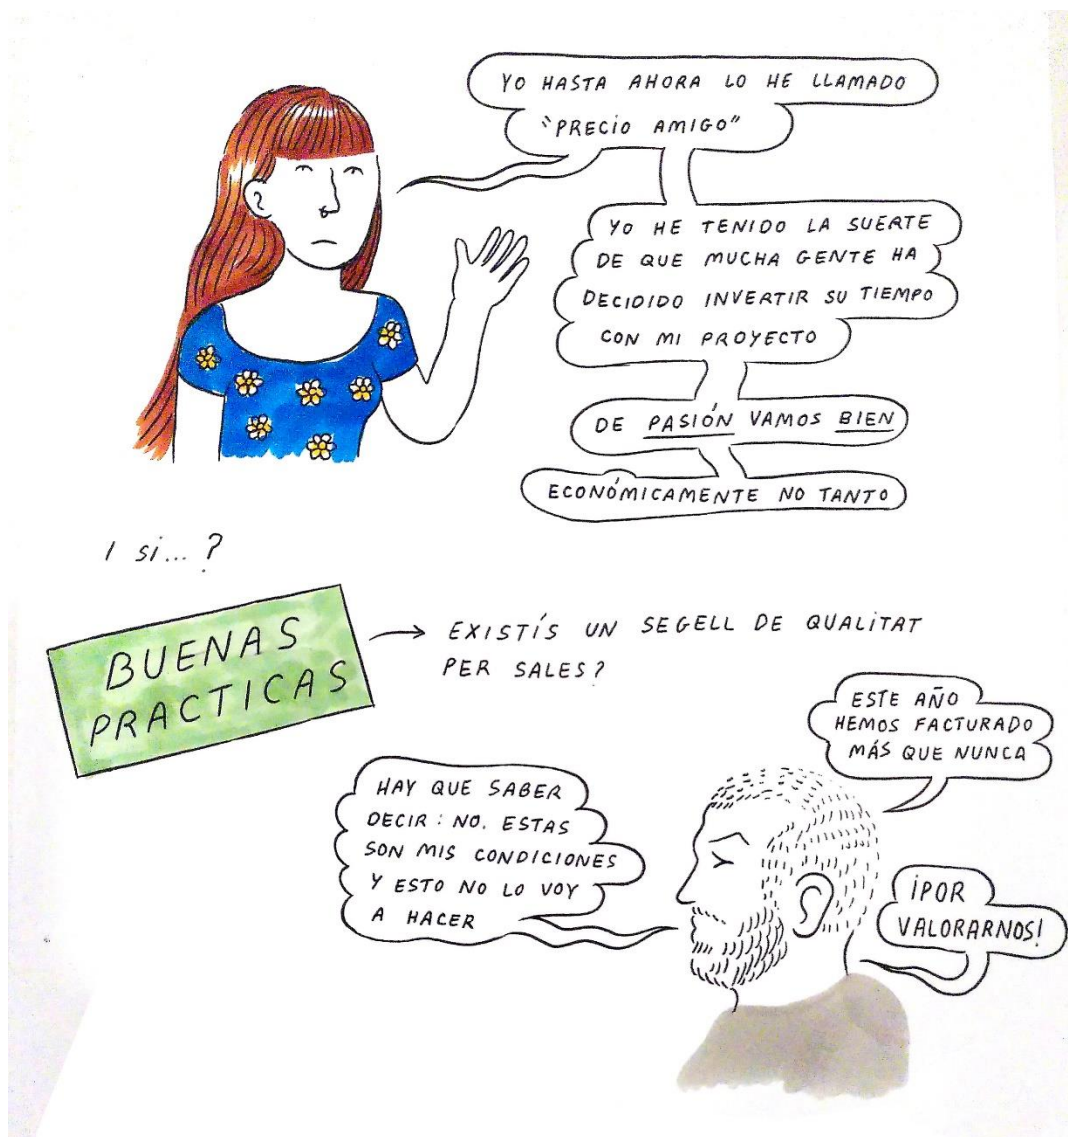 YO HASTA AHORA LO HE LLAMADO
"PRECIO AMIGO"
YO HE TENIDO LA SUERTE
DE QUE MUCHA GENTE HA
DECIDIDO INVERTIR SU TIEMPO
CON MI PROYECTO
DE PASIÓN VAMOS BIEN
ECONÓMICAMENTE NO TANTO
I si... ?
BUENAS
PRACTICAS
EXISTÍS UN SEGELL DE QUALITAT
PER SALES?
ESTE AÑO
HEMOS FACTURADO
MÁS QUE NUNCA
HAY QUE SABER
DECIR: NO. ESTAS
SON MIS CONDICIONES
Y ESTO NO LO VOY
A HACER
¡POR
VALORARNOS!